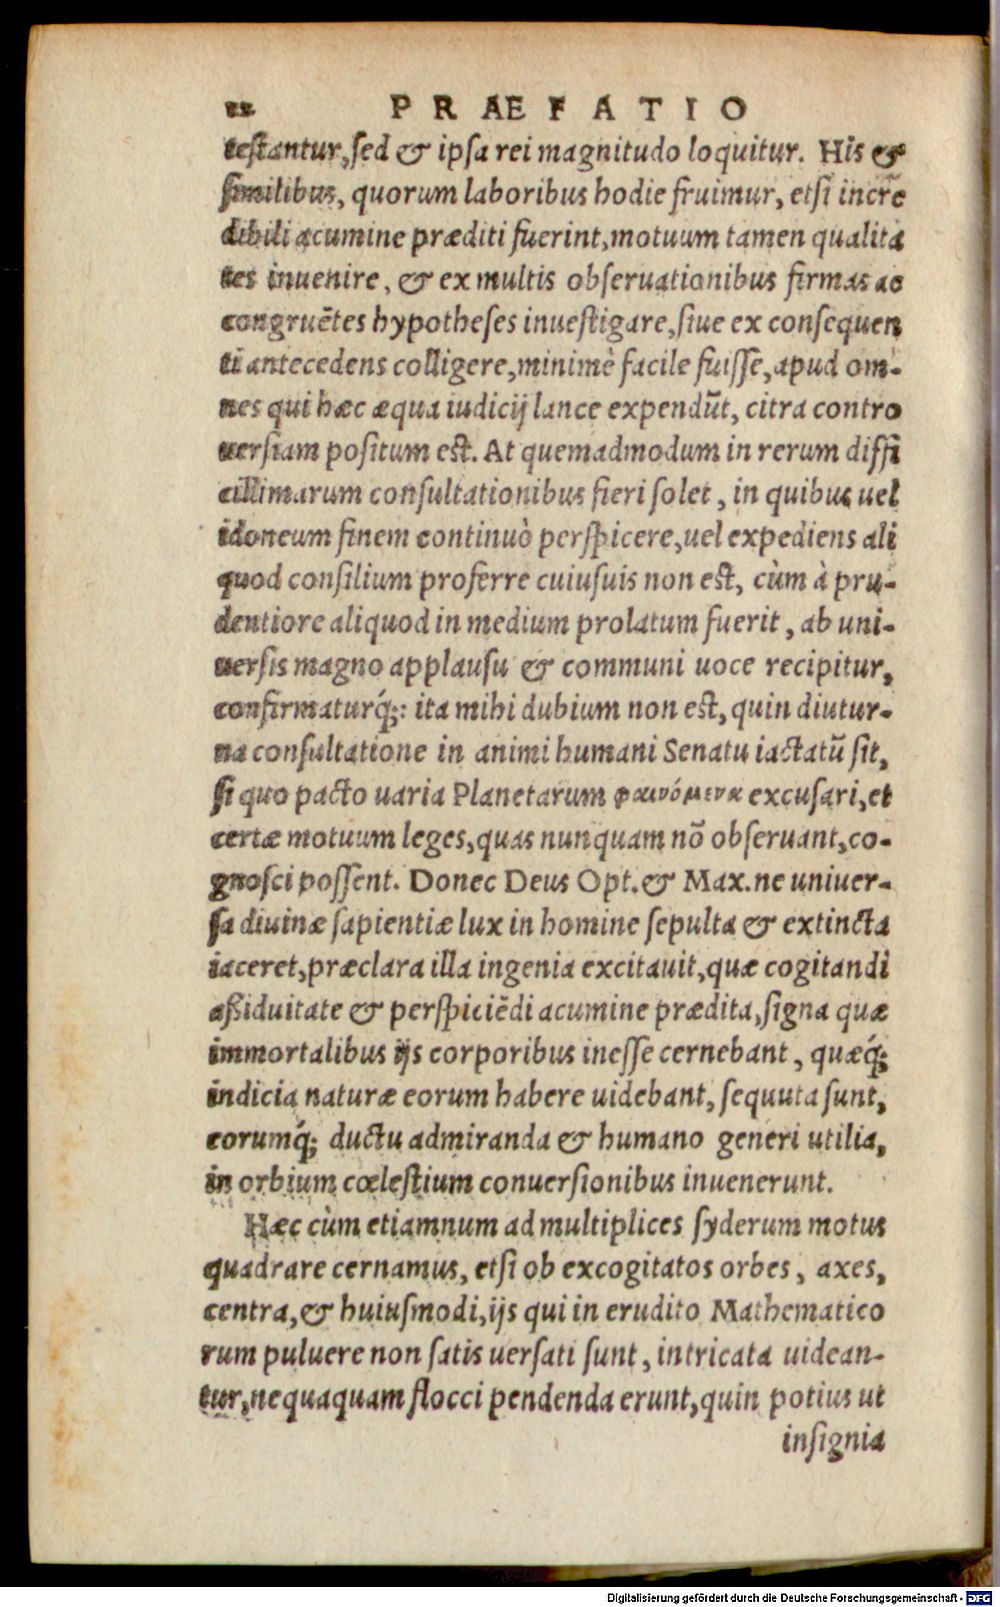 22 PRAEFATIO
testantur, sed & ipsa rei magnitudo loquitur. His &
similibus, quorum laboribus hodie fruimur, etsi incrē
dibili acumine præditi fuerint, motuum tamen qualita
tes inuenire, & ex multis obseruationibus firmas ac
congruētes hypotheses inuestigare, siue ex consequen
ti antecedens colligere, minimè facile fuisse, apud om-
nes qui hæc æqua iudicij lance expendūt, citra contro
uersiam positum est. At quemadmodum in rerum diffi
cillimarum consultationibus fieri solet, in quibus uel
idoneum finem continuò perspicere, uel expediens ali
quod consilium proferre cuiusuis non est, cùm à pru-
dentiore aliquod in medium prolatum fuerit, ab uni-
uersis magno applausu & communi uoce recipitur,
confirmaturq́;: ita mihi dubium non est, quin diutur-
na consultatione in animi humani Senatu iactatū sit,
si quo pacto uaria Planetarum φαινόμενα excusari, et
certæ motuum leges, quas nunquam nō obseruant, co-
gnosci possent. Donec Deus Opt. & Max. ne uniuer-
sa diuinæ sapientiæ lux in homine sepulta & extincta
iaceret, præclara illa ingenia excitauit, quæ cogitandi
aßiduitate & perspiciēdi acumine prædita, signa quæ
immortalibus ijs corporibus inesse cernebant, quæq́;
indicia naturæ eorum habere uidebant, sequuta sunt,
eorumq́; ductu admiranda & humano generi utilia,
in orbium cœlestium conuersionibus inuenerunt.
Hæc cùm etiamnum ad multiplices syderum motus
quadrare cernamus, etsi ob excogitatos orbes, axes,
centra, & huiusmodi, ijs qui in erudito Mathematico
rum puluere non satis uersati sunt, intricata uidean-
tur, nequaquam flocci pendenda erunt, quin potius ut
insignia
Digitalisierung gefördert durch die Deutsche Forschungsgemeinschaft - DFG